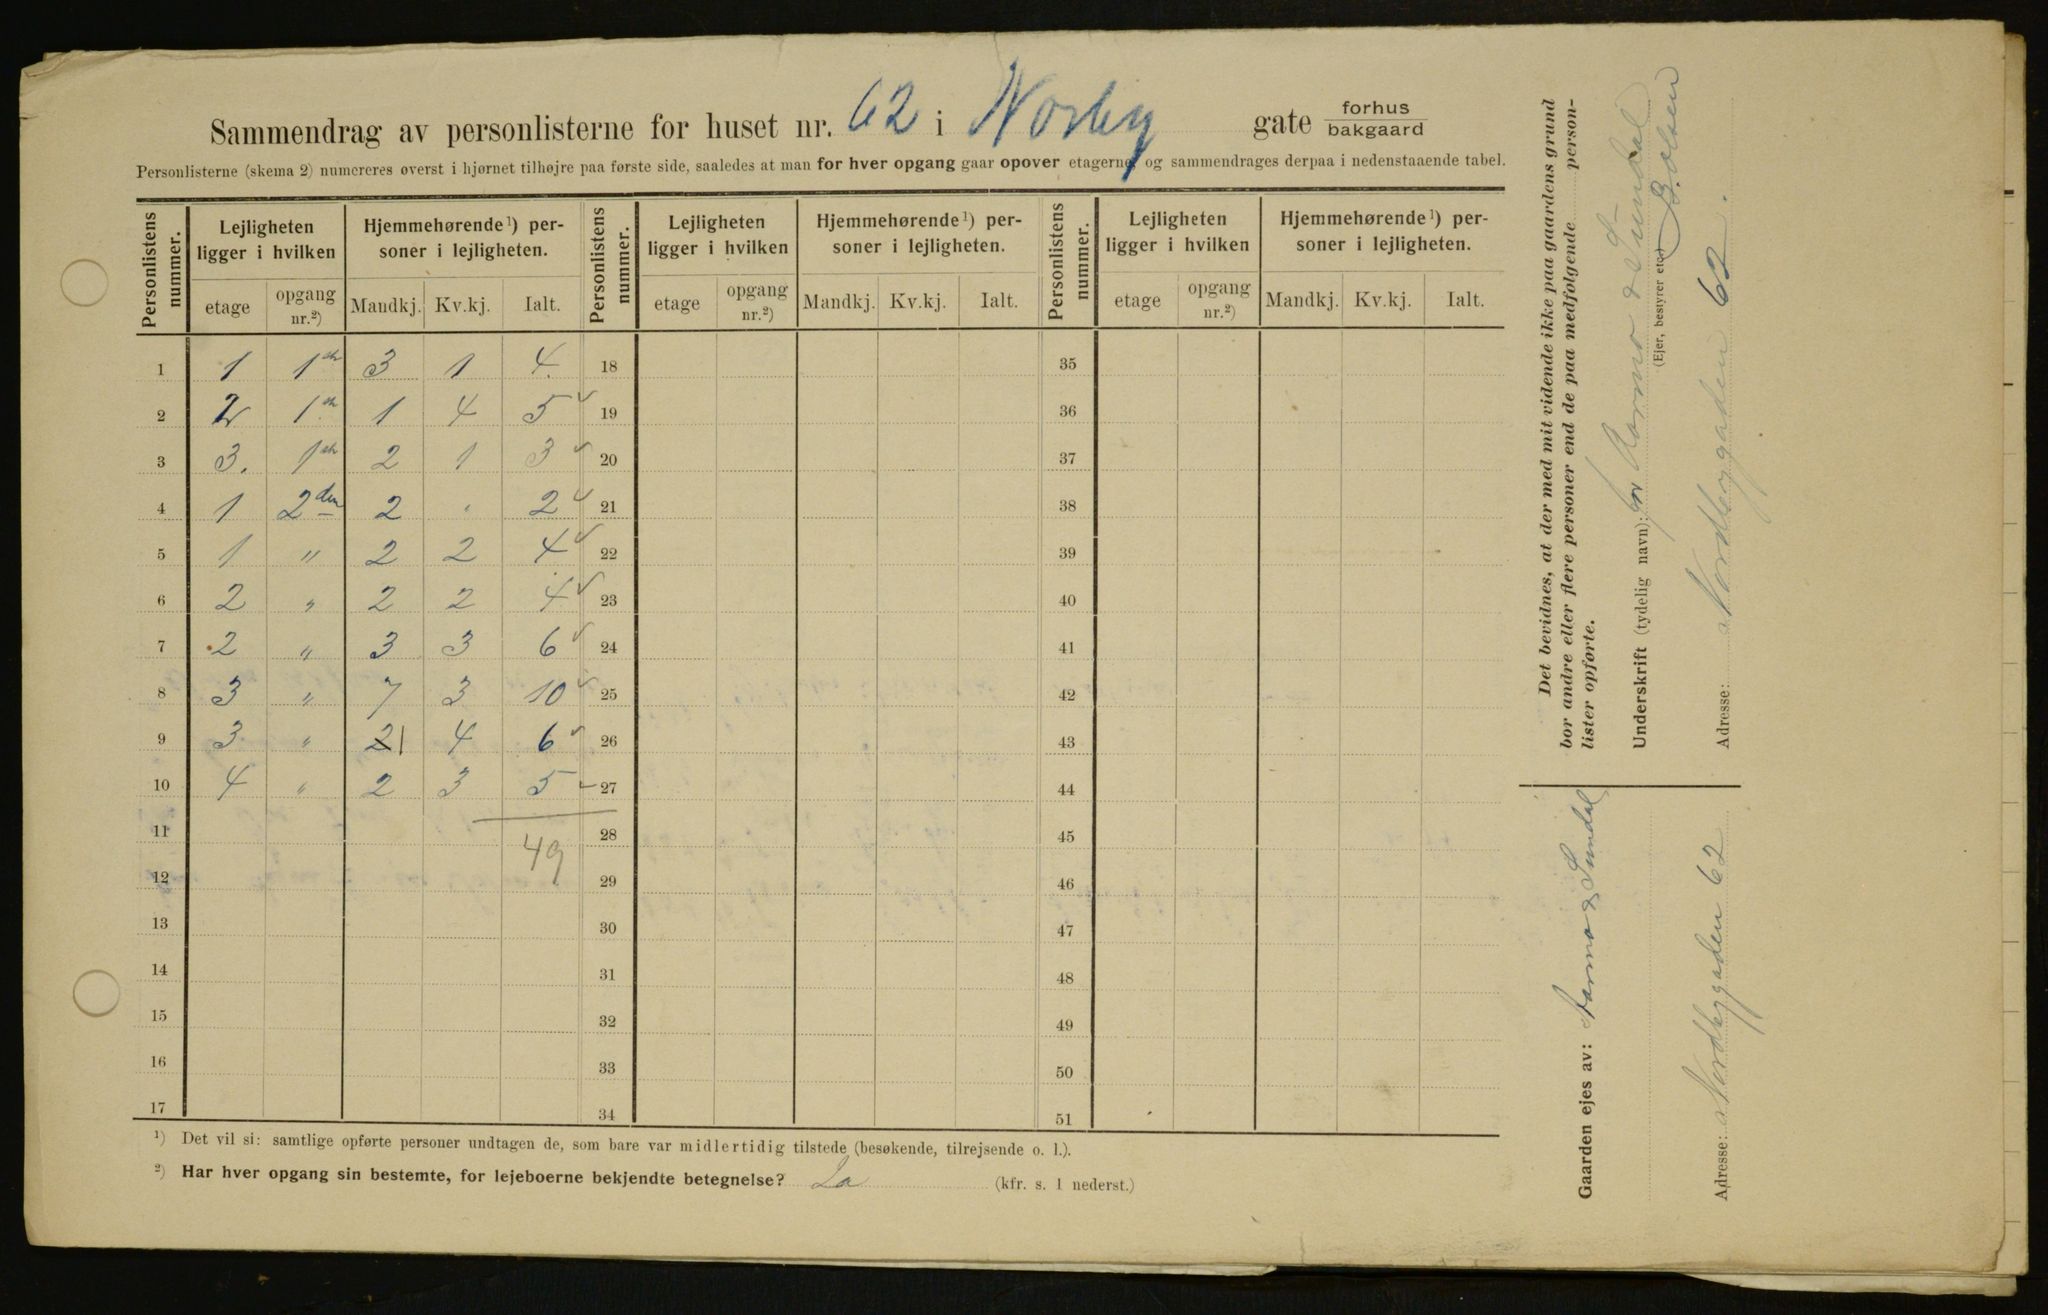 Sammendrag av personlisterne for huset nr. 62 i Norby gate forhus bakgaard
Personlisterne (skema 2) numereres øverst i hjørnet tilhøjre paa første side, saaledes at man for hver opgang gaar opover etagerne, og sammendrages derpaa i nedenstaaende tabel.
Personlistens nummer. Lejligheten ligger i hvilken Hjemmehørende¹) personer i lejligheten. Personlistens nummer. Lejligheten ligger i hvilken Hjemmehørende¹) personer i lejligheten. Personlistens nummer. Lejligheten ligger i hvilken Hjemmehørende¹) personer i lejligheten.
etage opgang nr.²) Mandkj. Kv.kj. Ialt. etage opgang nr.²) Mandkj. Kv.kj. Ialt. etage opgang nr.²) Mandkj. Kv.kj. Ialt.
1 1 1ste 3 1 4 18 35
2 2 1ste 1 4 5 19 36
3 3. 1ste 2 1 3 20 37
4 1 2den 2 " 2 21 38
5 1 " 2 2 4 22 39
6 2 " 2 2 4 23 40
7 2 " 3 3 6 24 41
8 3 " 7 3 10 25 42
9 3 " 21 4 6 26 43
10 4 " 2 3 5 27 44
11 49 28 45
12 29 46
13 30 47
14 31 48
15 32 49
16 33 50
17 34 51
¹) Det vil si: samtlige opførte personer undtagen de, som bare var midlertidig tilstede (besøkende, tilrejsende o. l.).
²) Har hver opgang sin bestemte, for lejeboerne bekjendte betegnelse? Ja (kfr. s. 1 nederst.)
Det bevidnes, at der med mit vidende ikke paa gaardens grund
bor andre eller flere personer end de paa medfølgende personlister opførte.
Underskrift (tydelig navn): for & Sundal
(Ejer, bestyrer etc.) B. Olsen
Adresse: Nordbygaden 62.
Gaarden ejes av: & Sundal
Adresse: Nordbygaden 62